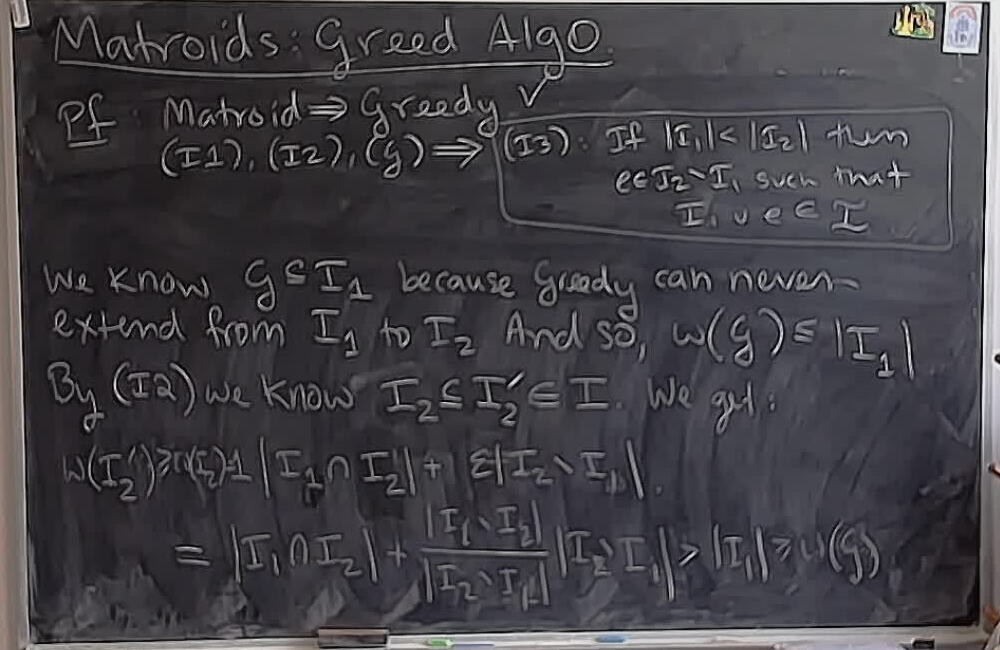 Matroids: Greed Algo.
Pf: Matroid ⇒ Greedy ✓
(I1), (I2), (G) ⇒ (I3): If |I₁| < |I₂| then
e∈I₂∖I₁ such that
I₁ ∪ e ∈ I
We know G ⊆ I₁ because Greedy can never
extend from I₁ to I₂ And so, w(G) ≤ |I₁|
By (I2) we know I₂ ⊆ I₂′ ∈ I. We get:
w(I₂′) ≥ w(I₂) = 1 |I₁ ∩ I₂| + ε|I₂∖I₁|.
= |I₁ ∩ I₂| + |I₁∖I₂| / |I₂∖I₁| |I₂∖I₁| > |I₁| ≥ w(G)